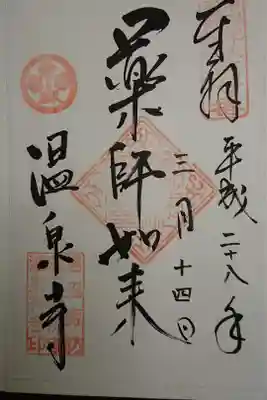 奉拝
平成二十八年
三月十四日
薬師如来
温泉寺